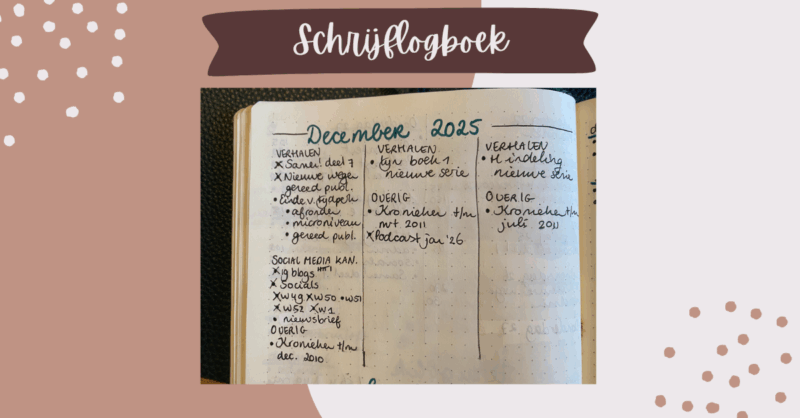 Schrijflogboek
December 2025
VERHALEN
x Samen! deel 7
x Nieuwe wegen
gereed publ.
• Einde v. tijdperk
• afronden
• microniveau
• gereed publ.
SOCIAL MEDIA KAN.
x ig blogs
x Socials
x W49 x W50 • W51
x W52 x W1
• nieuwsbrief
OVERIG
• Kronieken t/m
dec. 2010
VERHALEN
• tijn boek 1
nieuwe serie
OVERIG
• Kronieken t/m
mrt 2011
x Podcast jan '26
VERHALEN
• H indeling
nieuwe serie
OVERIG
• Kronieken t/m
juli 2011